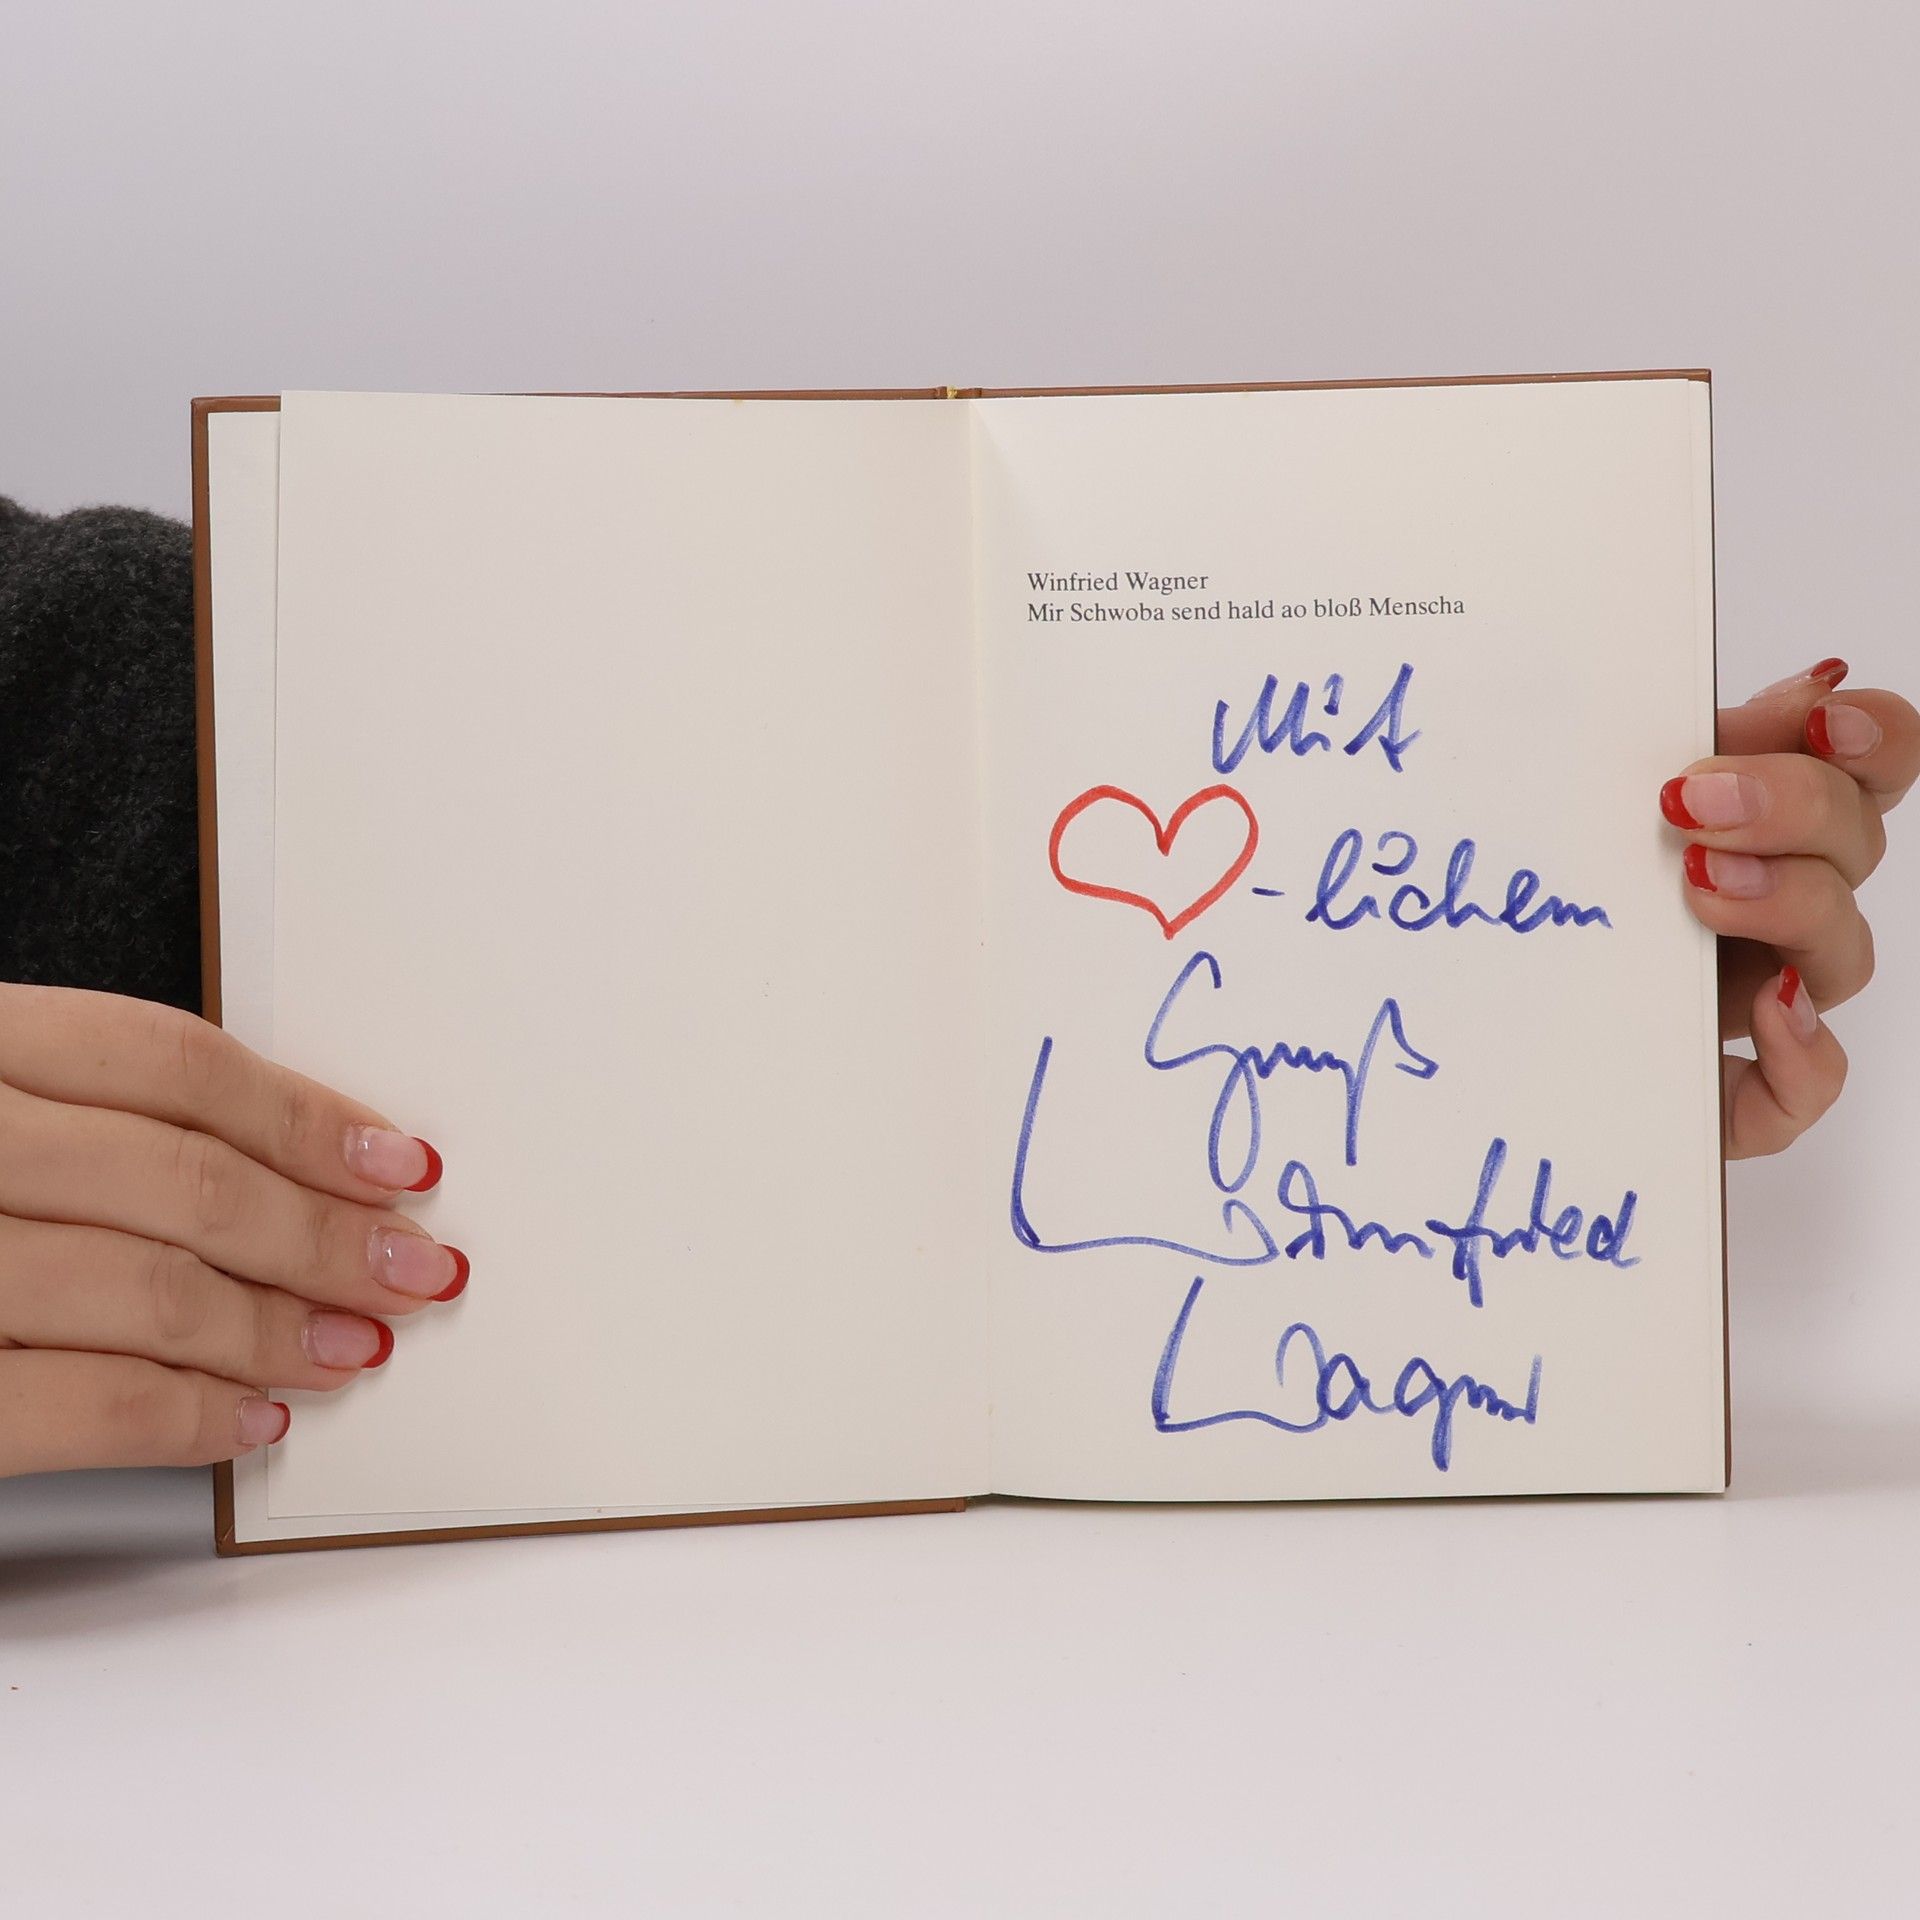 Winfried Wagner
Mir Schwoba send hald ao bloß Menscha
Mit
-lichem
Gruß
Winfried
Wagner